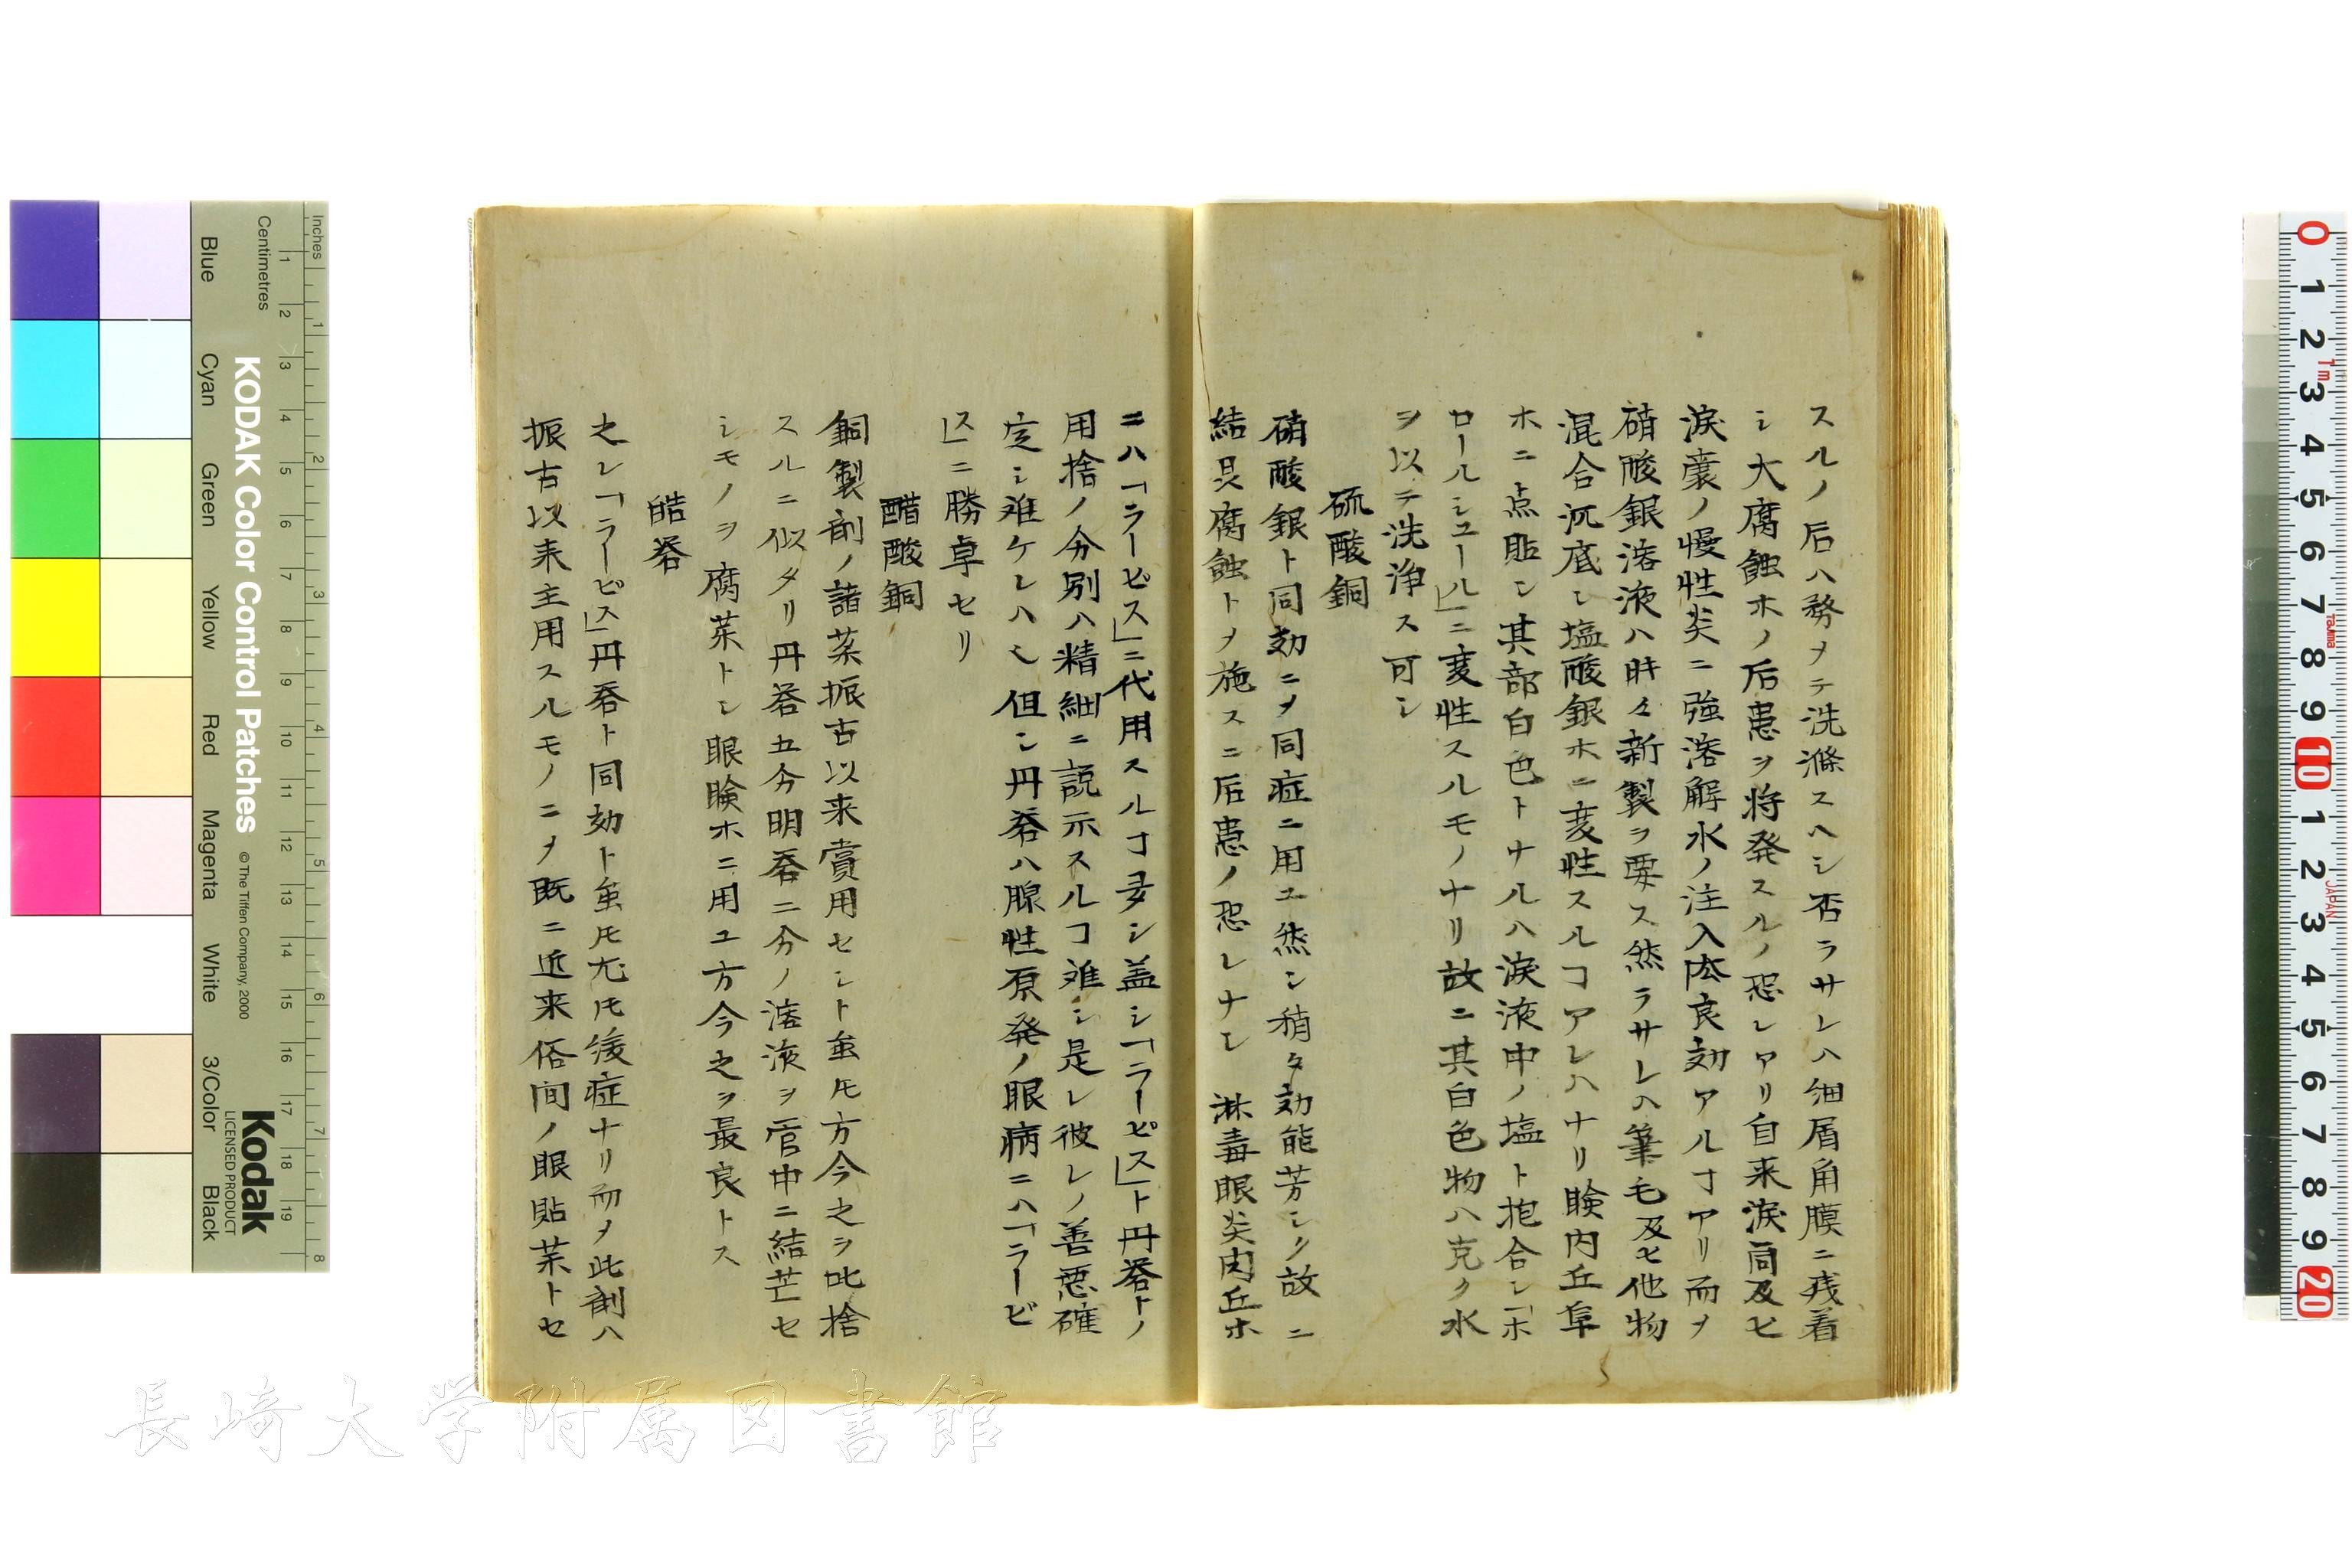 スルノ后ハ務メテ洗滌スヘシ否ラサレハ細屑角膜ニ残着
シ大腐蝕ホノ后患ヲ将発スルノ恐レアリ自来涙同及ヒ
涙嚢ノ慢性炎ニ強溶解水ノ注入太良効アルヿアリ而メ
硝酸銀溶液ハ時々新製ヲ要ス然ラサレハ筆毛及ヒ他物
混合沉底シ塩酸銀ホニ変性スルコアレハナリ瞼内丘阜
ホニ点貼シ其部白色トナルハ涙液中ノ塩ト抱合シ「ホ
ロールシュール」ニ変性スルモノナリ故ニ其白色物ハ克ク水
ヲ以テ洗浄ス可シ
硫酸銅
硝酸銀ト同効ニメ同症ニ用ユ然シ稍々効能劣シク故ニ
結畏腐蝕トメ施スニ后患ノ恐レナシ 淋毒眼炎肉丘ホ
ニハ「ラーピス」ニ代用スルヿ多シ蓋シ「ラーピス」ト丹礬トノ
用捨ノ分別ハ精細ニ説示スルコ難シ是レ彼レノ善悪確
定シ难ケレハシ但シ丹礬ハ腺性原発ノ眼病ニハ「ラーピ
ス」ニ勝卓セリ
醋酸銅
銅製剤ノ諸薬振古以来賞用セシト虽𪜈方今之ヲ叱捨
スルニ似タリ丹礬五分明礬二分ノ溶液ヲ管中ニ結芒セ
シモノヲ腐薬トシ眼瞼ホニ用ユ方今之ヲ最良トス
皓礬
之レ「ラーピス」丹礬ト同効ト虽𪜈尤𪜈緩症ナリ而メ此剤ハ
振古以来主用スルモノニメ既ニ近来俗間ノ眼貼薬トセ
KODAK Color Control Patches
© The Tiffen Company, 2000
Kodak
LICENSED PRODUCT
Inches
Centimetres
Blue
Cyan
Green
Yellow
Red
Magenta
White
3/Color
Black
長崎大学附属図書館